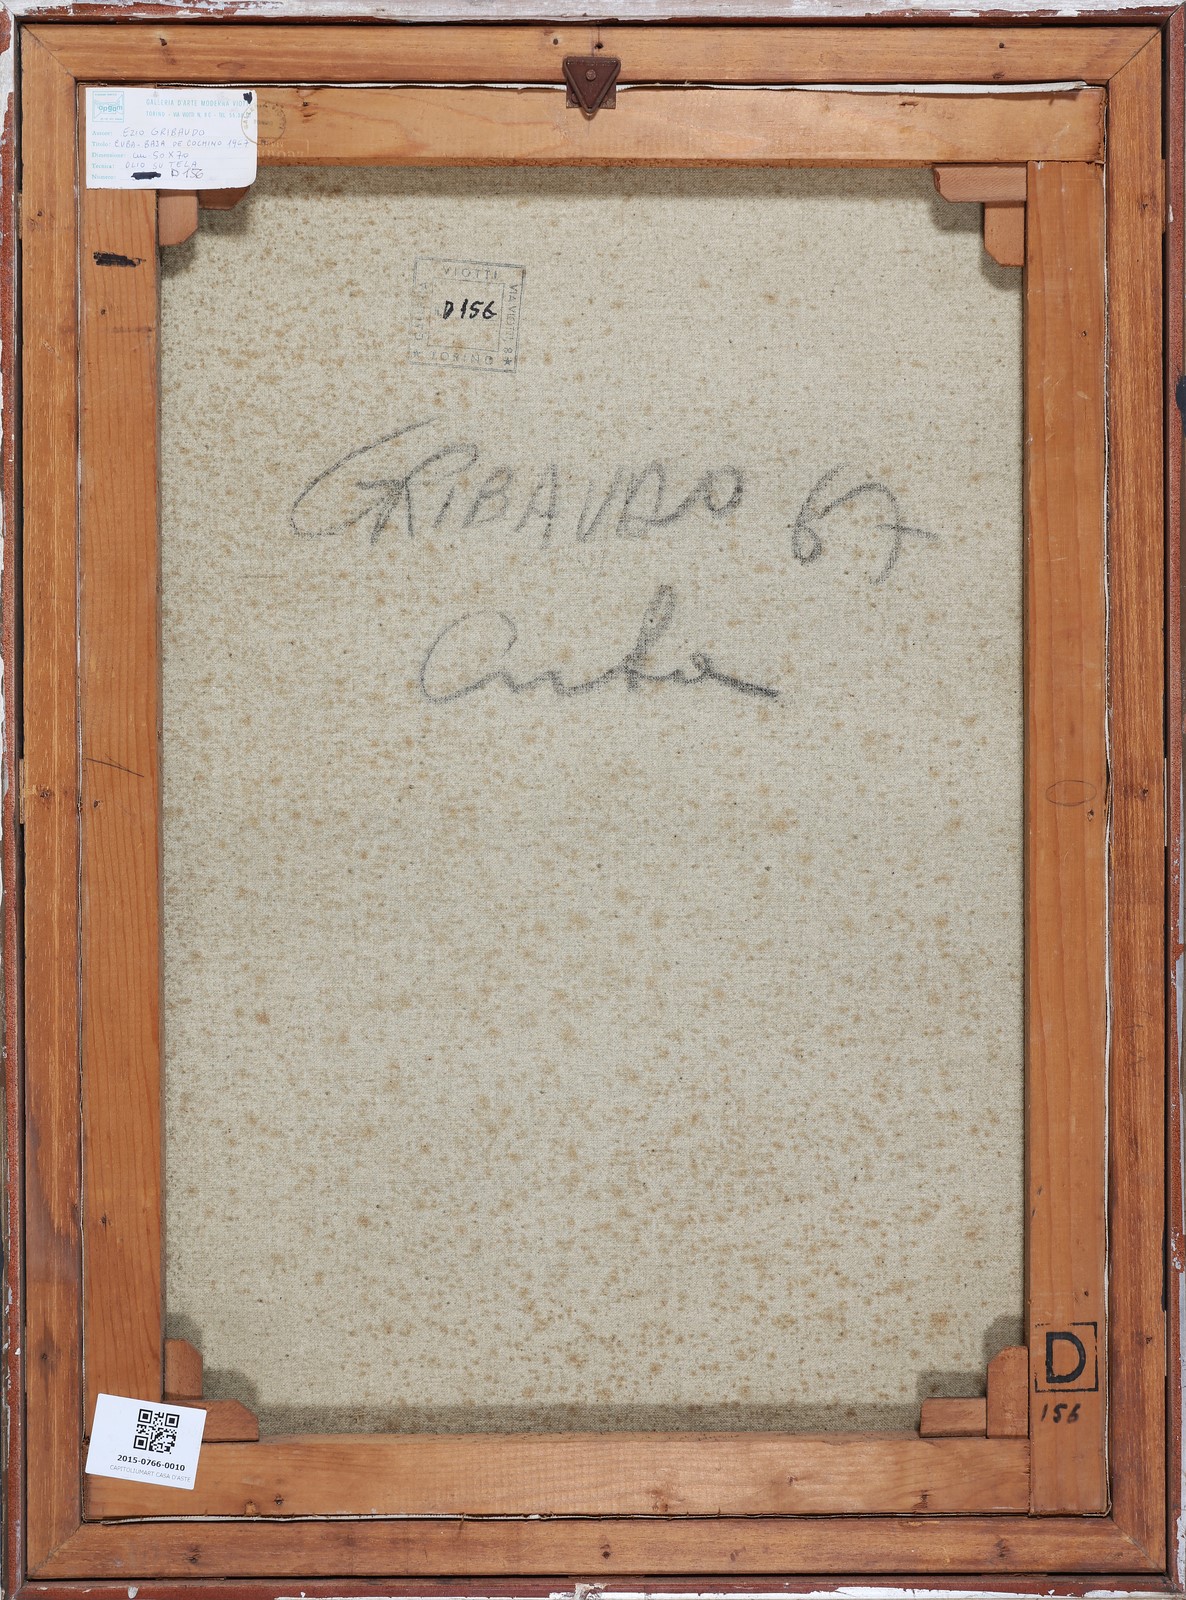 GALLERIA D'ARTE MODERNA VIOTTI
TORINO - VIA VIOTTI N. 8
Autore: EZIO GRIBAUDO
Titolo: CUBA - BAJA DE COCHINO 1967
Dimensioni: cm 50 X 70
Tecnica: OLIO SU TELA
Numero: D 156
VIOTTI
VIA VIOTTI 8
TORINO
GALLERIA
D 156
GRIBAUDO 67
Cuba
D
156
2015-0766-0010
CAPITOLIUMART CASA D'ASTE